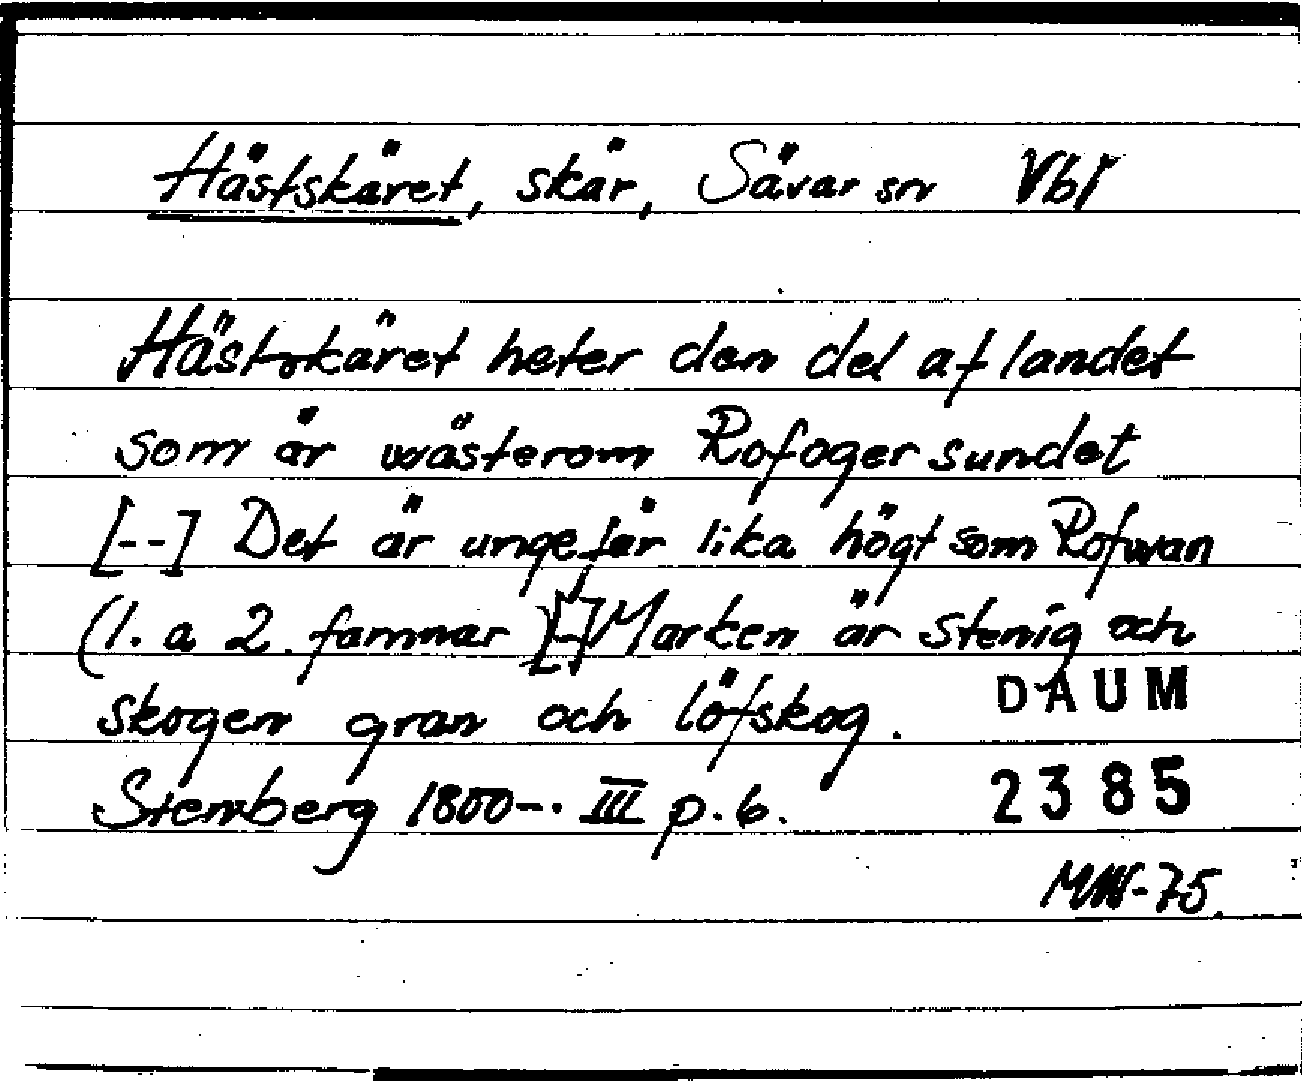 Hästskäret, skär, Sävar sn Vbt
Hästskäret heter den del af landet
som är wästerom Rofögersundet
[--] Det är ungefär lika högt som Rofwan
(1. a 2. famnar)[-] Marken är stenig och
skogen gran och löfskog.
DAUM
Stenberg 1800-. III p. 6.
2385
MW-75.